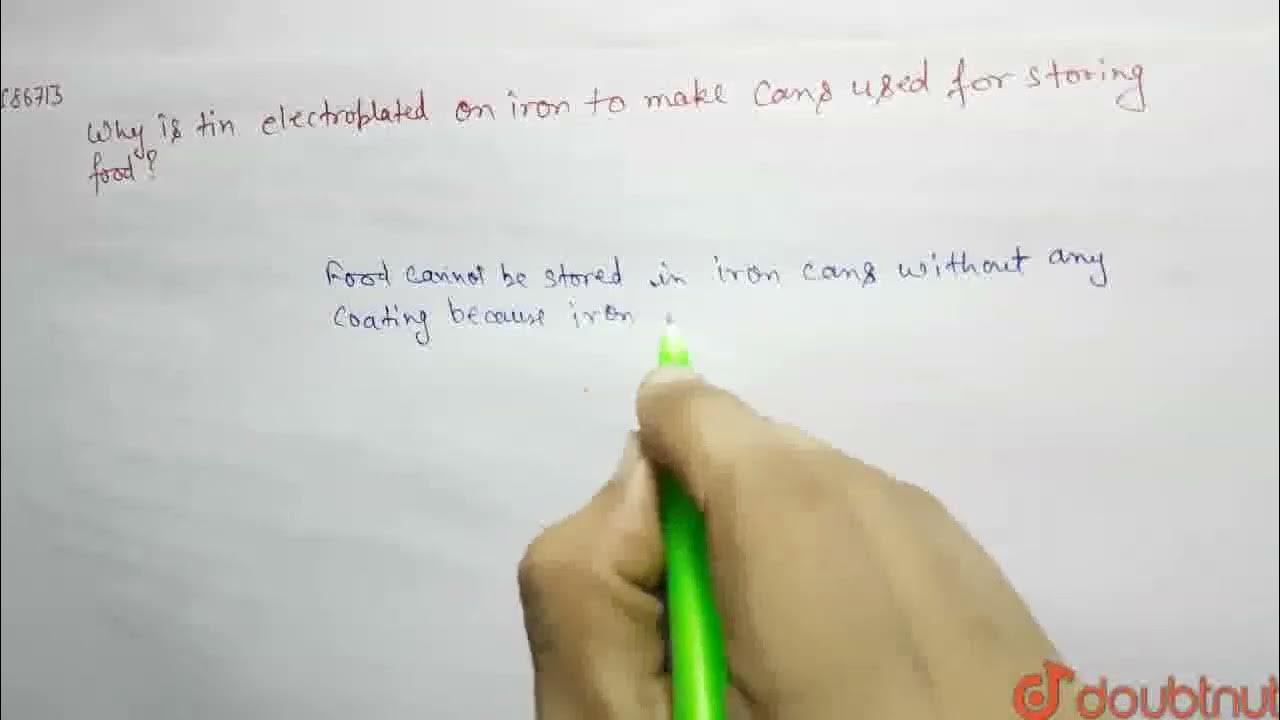 Why is tin electroplated on iron to make cans used for storing
food?
Food cannot be stored in iron cans without any
coating because iron
doubtnut